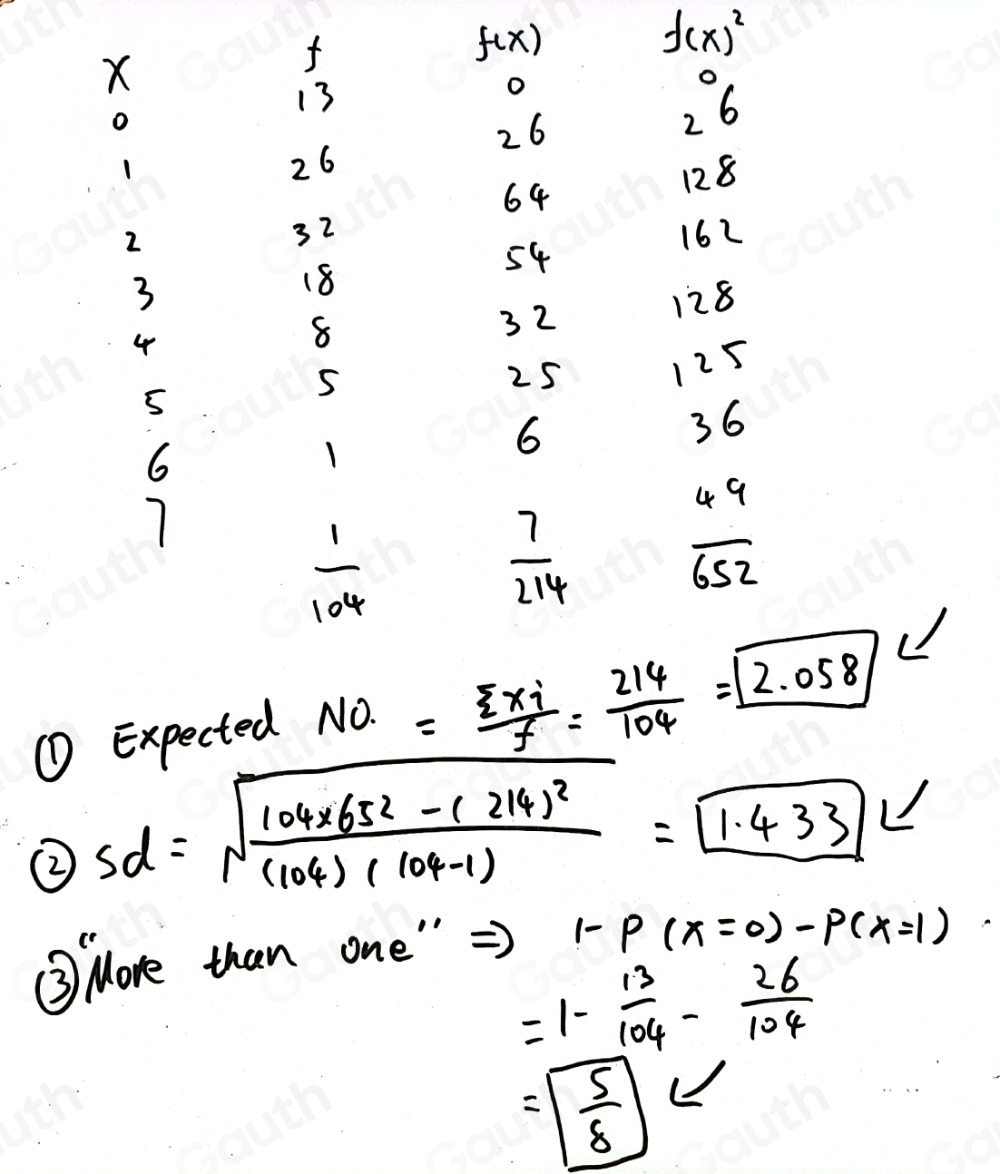 x f f(x) f(x)²
0 13 0 0
1 26 26 26
2 32 64 128
3 18 54 162
4 8 32 128
5 5 25 125
6 1 6 36
7 1 7 49
104 214 652
① Expected NO. = Σxi/f = 214/104 = 2.058
② sd = √((104×652 - (214)²)/((104)(104-1))) = 1.433
③ "More than one" ⇒ 1-P(x=0)-P(x=1)
= 1- 13/104 - 26/104
= 5/8
Gauth